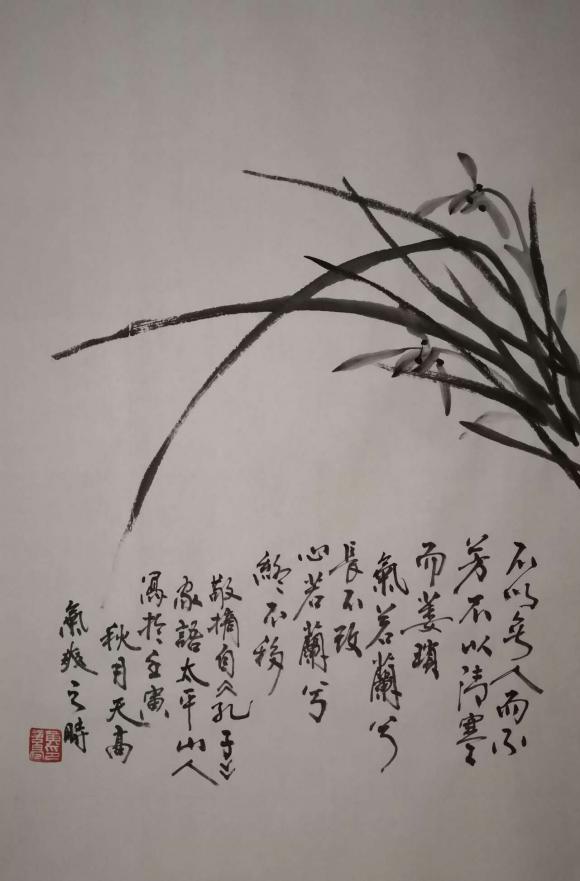 不以無人而不
芳不以清寒
而萎瑣
氣若蘭兮
長不改
心若蘭兮
終不移
敬摘自《孔子》
家語太平山人
寫於壬寅
秋月天高
氣爽之時